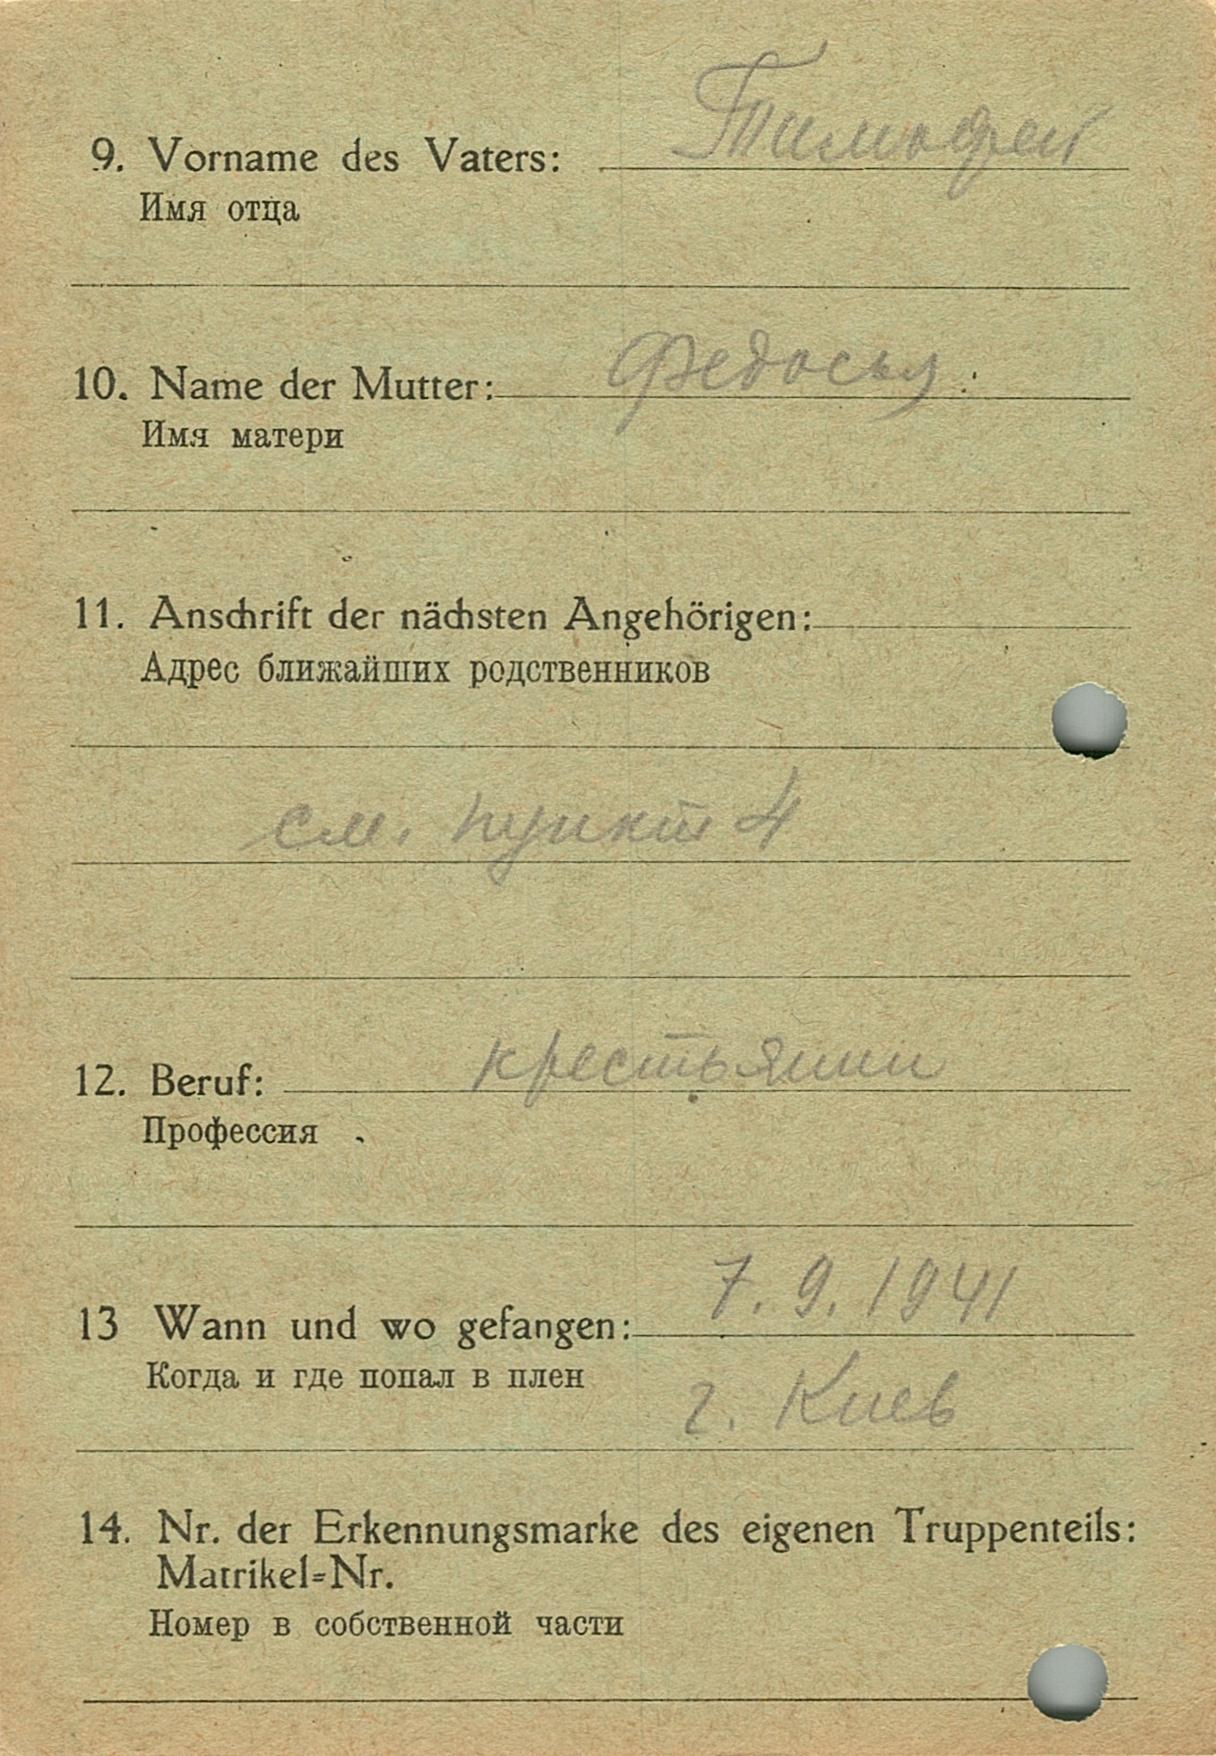 9. Vorname des Vaters: Тимофей
Имя отца
10. Name der Mutter: Федосья
Имя матери
11. Anschrift der nächsten Angehörigen:
Адрес ближайших родственников
см. пункт 4
12. Beruf: крестьянин
Профессия
13 Wann und wo gefangen: 7. 9. 1941
Когда и где попал в плен г. Киев
14. Nr. der Erkennungsmarke des eigenen Truppenteils:
Matrikel=Nr.
Номер в собственной части